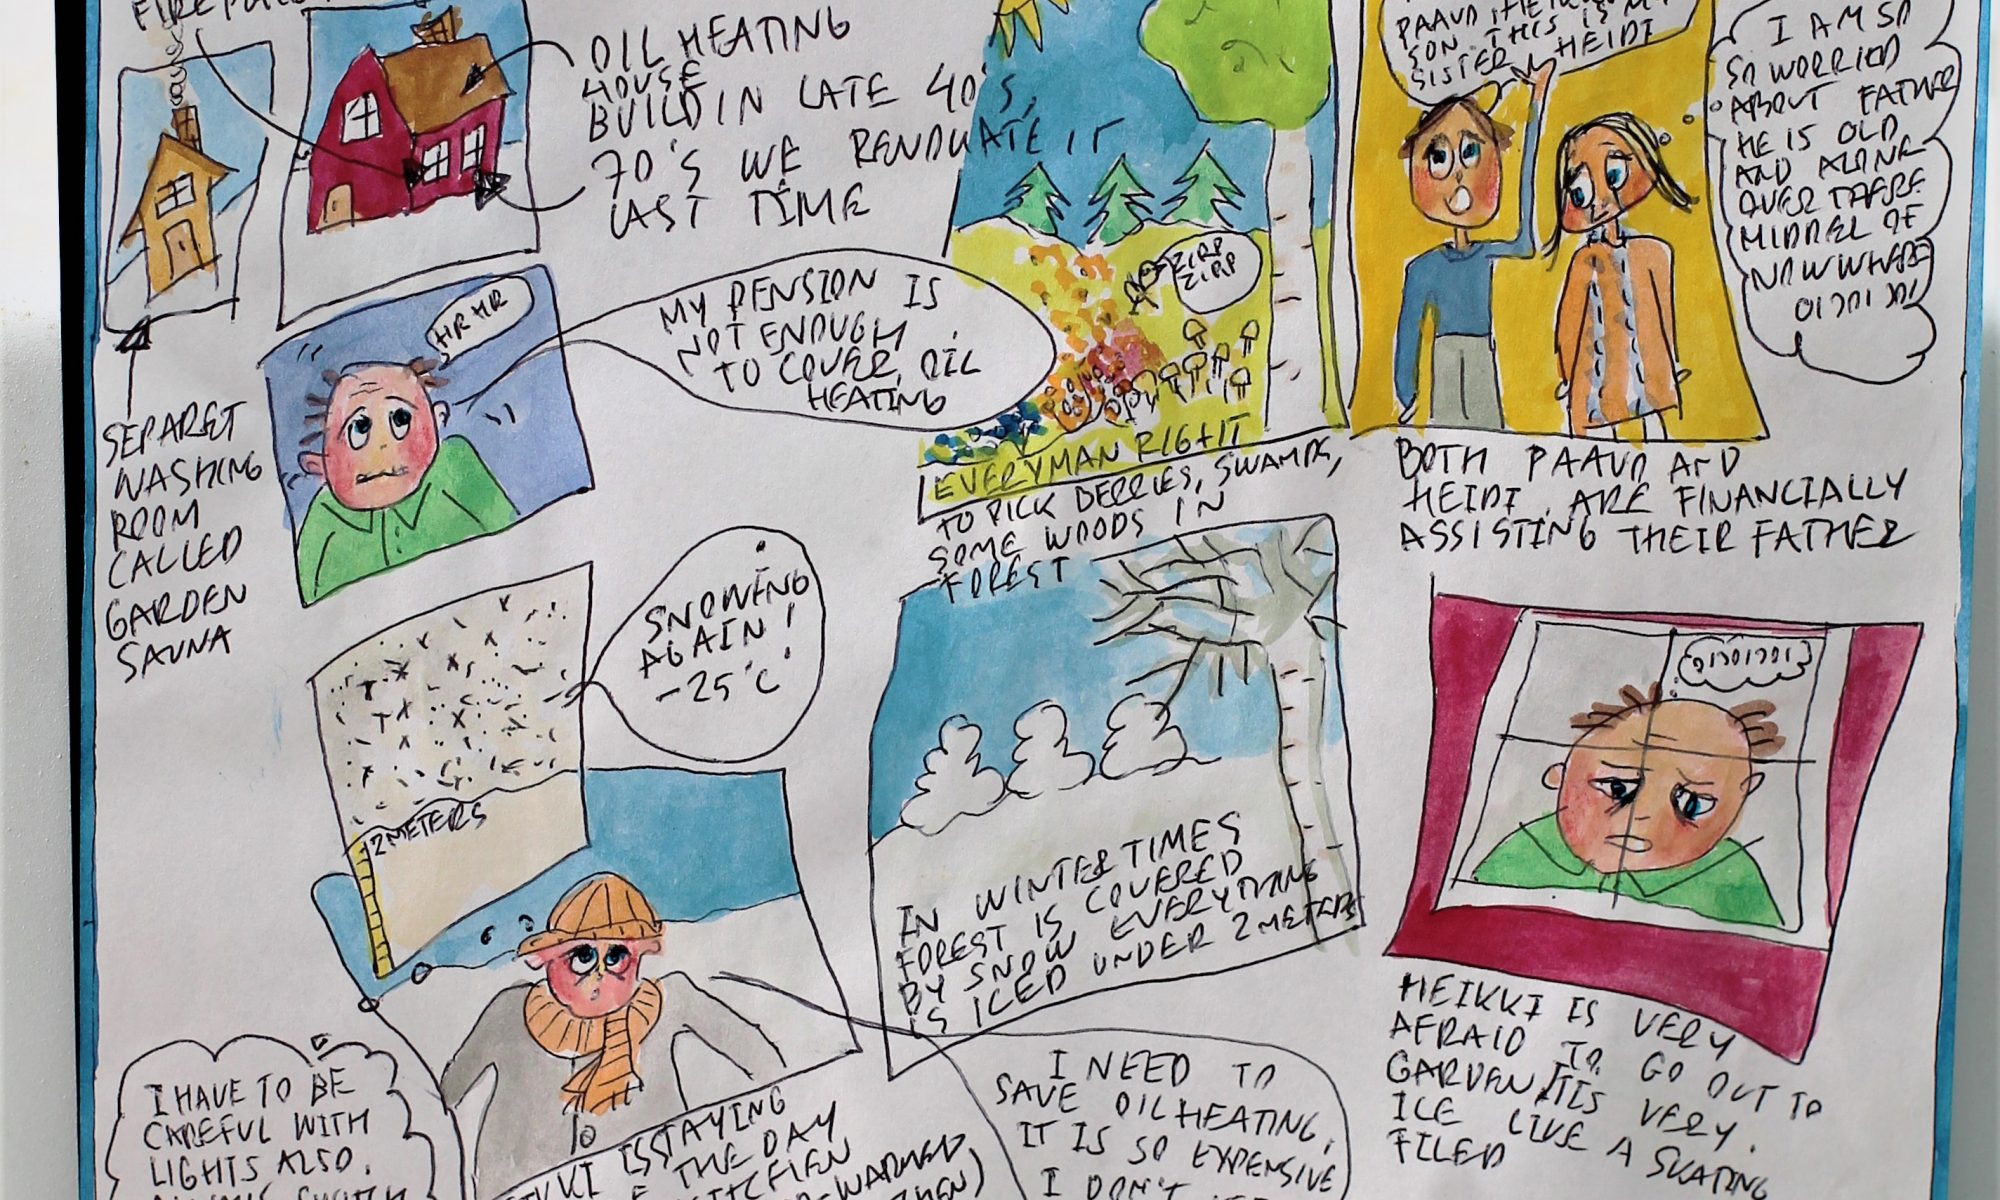 OIL HEATING
HOUSE
BUILD IN LATE 40'S,
70'S WE RENDUATE IT
LAST TIME
SEPARET
WASHING
ROOM
CALLED
GARDEN
SAUNA
HR HR
MY PENSION IS
NOT ENOUGH
TO COVER OIL
HEATING
ZIRP
ZIRP
EVERYMAN RIGHT
TO PICK BERRIES, SWAMPS,
SOME WOODS IN
FOREST
SON. THIS IS MY
SISTER HEIDI
I AM SO
SO WORRIED
ABOUT FATHER
HE IS OLD
AND ALONE
OVER THERE
MIDDEL OF
NOWWHERE
BOTH PAAVO AND
HEIDI ARE FINANCIALLY
ASSISTING THEIR FATHER
SNOWING
AGAIN!
-25°C
2 METERS
IN WINTER TIMES
FOREST IS COVERED
BY SNOW EVERYTHING
IS ICED UNDER 2 METERS
HEIKKI IS VERY
AFRAID TO GO OUT TO
GARDEN, ITIS VERY.
ICE LIKE A SKATING
FILED
I HAVE TO BE
CAREFUL WITH
LIGHTS ALSO.
IS STAYING
THE DAY
KITCHEN
I NEED TO
SAVE OIL HEATING,
IT IS SO EXPENSIVE
I DON'T